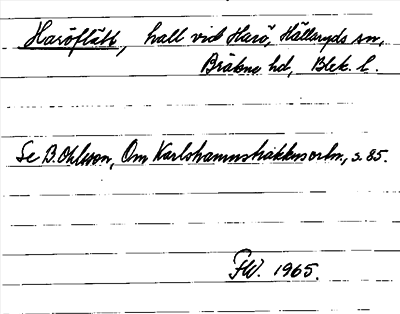 Haröflätt, hall vid Harö, Hällaryds sn,
Bräkne hd, Blek. l.
Se B. Ohlsson, Om Karlshamnstrakten ortn., s. 85.
FW. 1965.